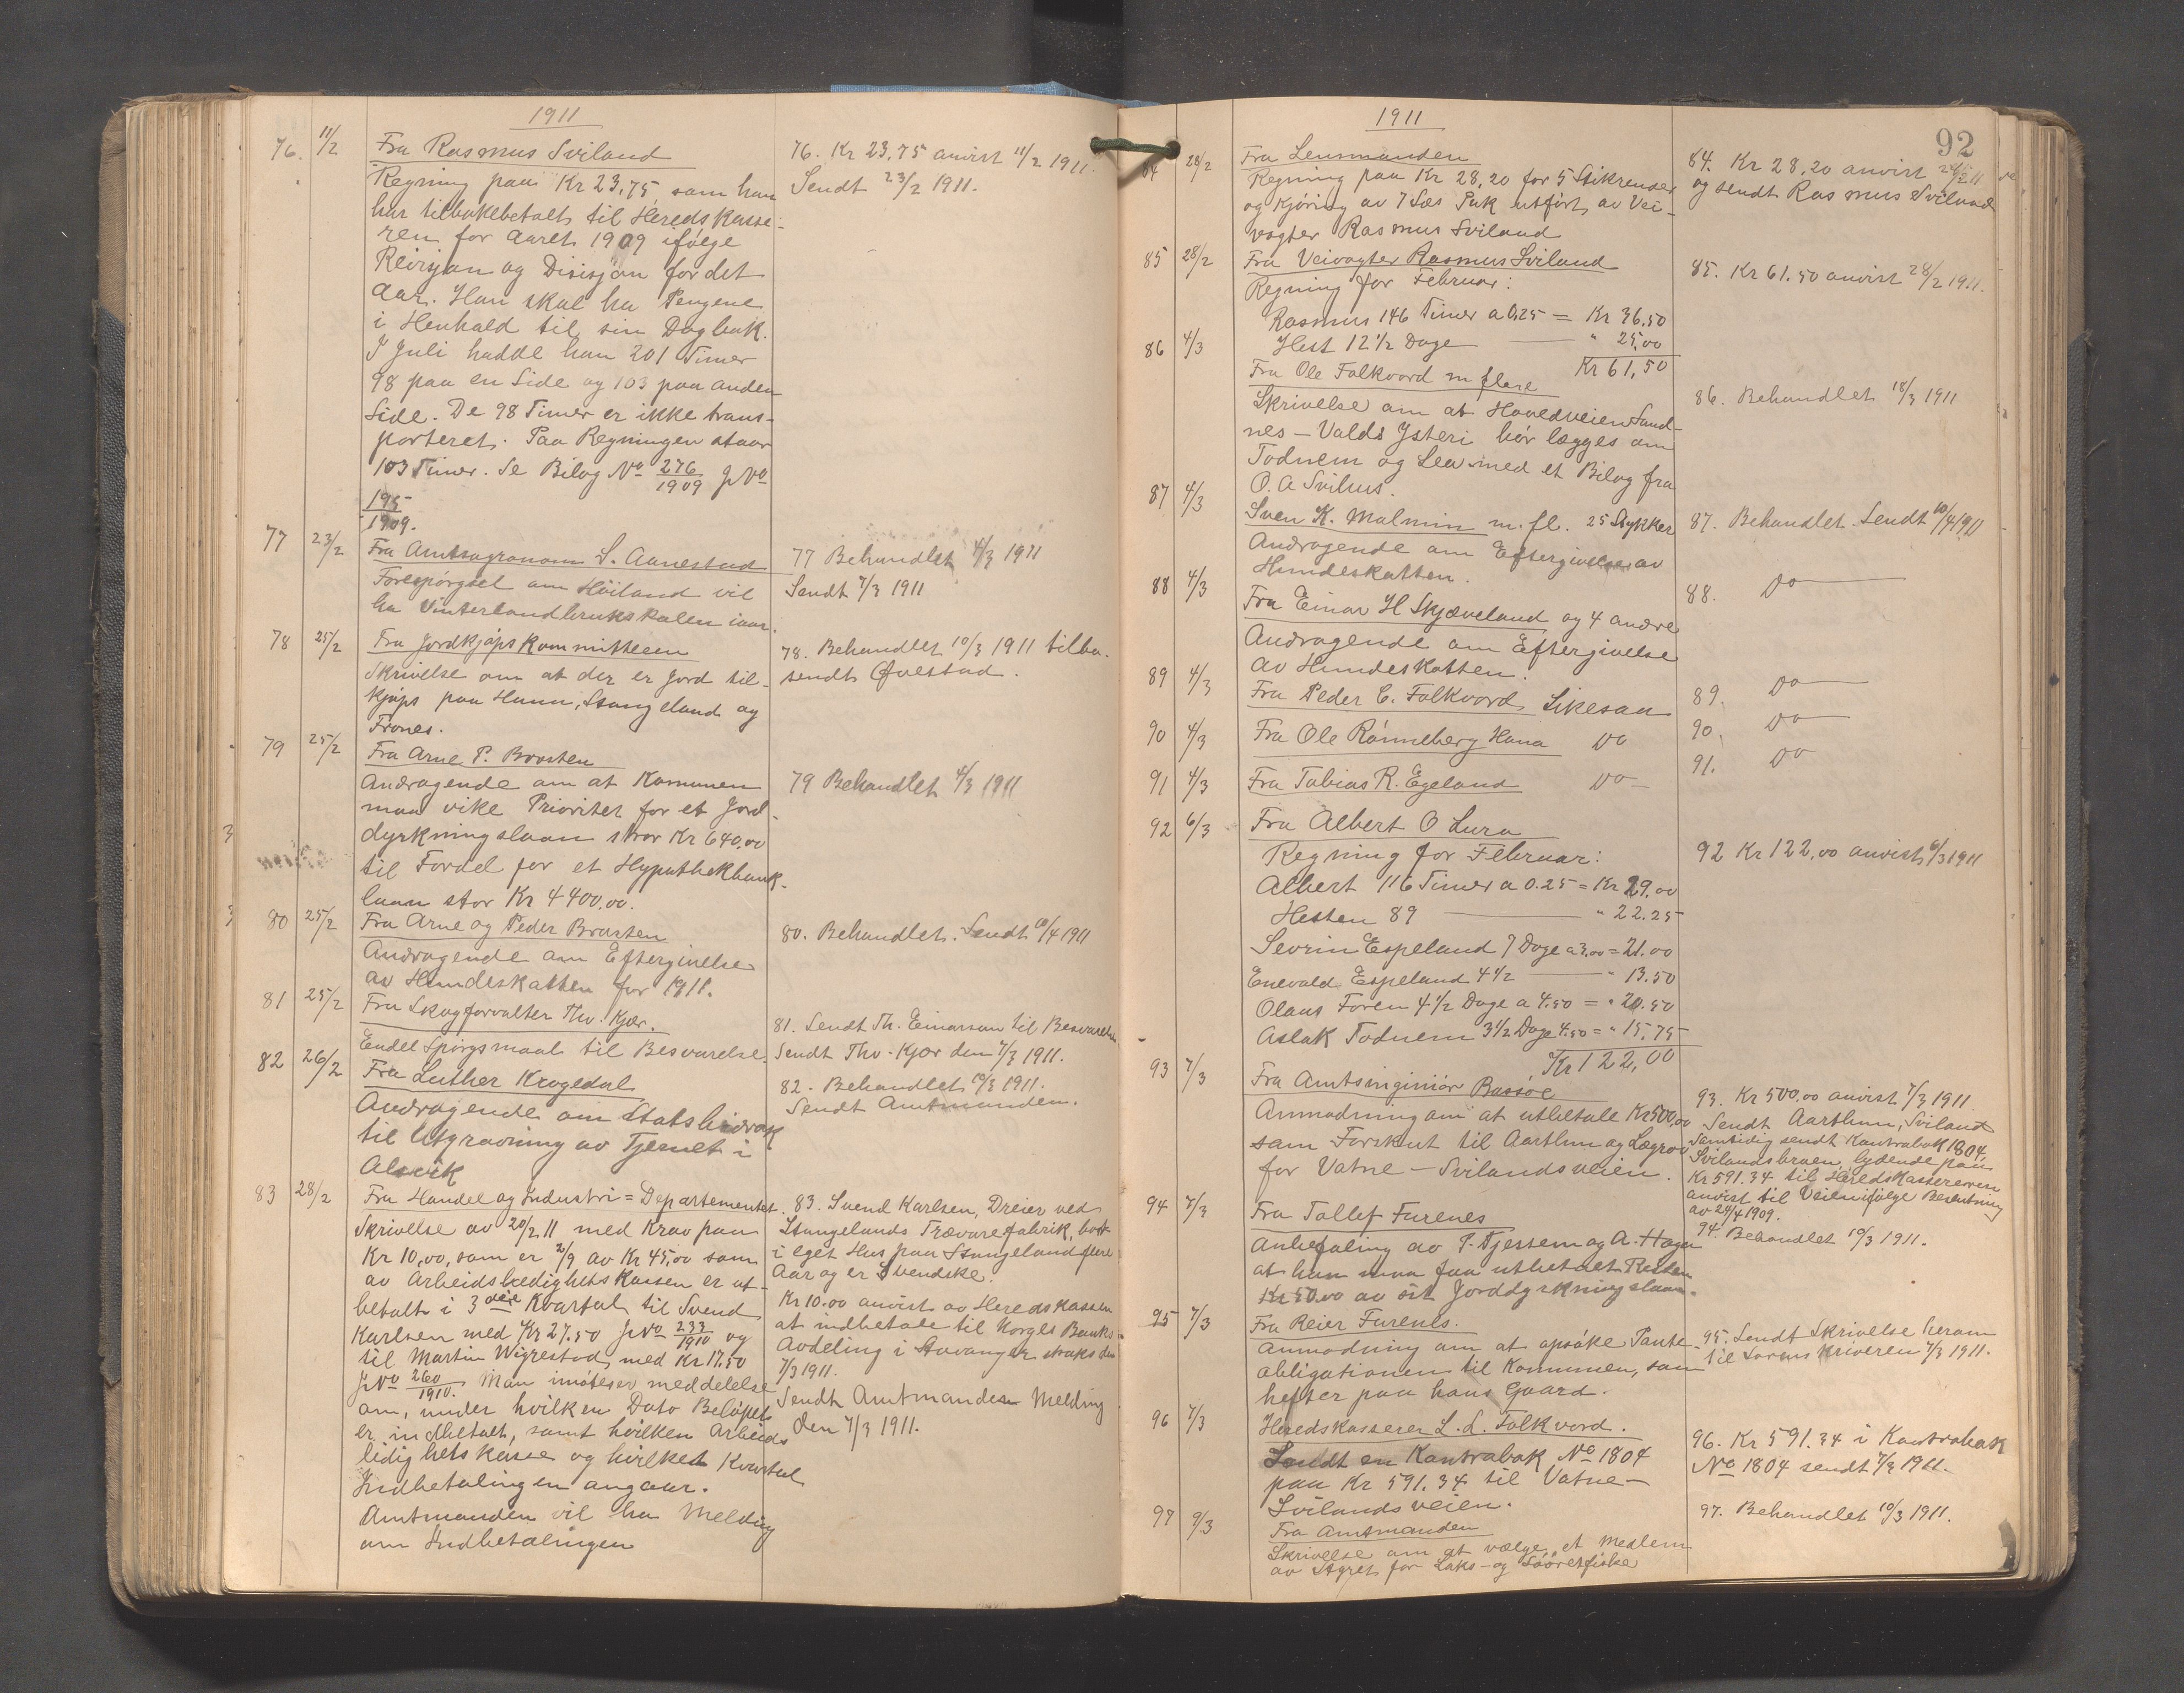 1911
76. 11/2 Fra Rasmus Sviland
Regning paa Kr 23,75, som han
har tilbakebetalt til Heredskasse-
ren for Aaret 1909 ifølge
Revisjon og Disisjon for det
Aar. Han skal ha Pengene
i Henhald til sin Dagbok.
I Juli hadde han 201 Timer
98 paa en Side og 103 paa anden
Side. De 98 Timer er ikke trans-
porteret. Paa Regningen staar
103 Timer. Se Bilag No 276/1909 JNo
195/1909.
76. Kr 23,75 anvist 11/2 1911.
Sendt 23/2 1911.
77 23/2 Fra Amtsagronom S. Aanestad
Forespørgsel om Höiland vil
ha Vinterlandbrukskolen iaar.
77 Behandlet 4/3 1911
Sendt 7/3 1911
78 25/2 Fra Jordkjøpskommitteen
Skrivelse om at der er Jord til-
kjøps paa Hana, Stangeland og
Frones.
78. Behandlet 10/3 1911 tilba-
sendt Qvestad.
79 25/2 Fra Arne P. Brosten
Andragende om at Kommunen
maa vike Prioritet for et Jord-
dyrkningslaan stor Kr 640,00
til Fordel for et Hypothekbank-
laan stor Kr 4400,00.
79 Behandlet 4/3 1911
80 25/2 Fra Arne og Peder Brosten
Andragende om Eftergivelse
av Hundeskatten for 1911.
80. Behandlet. Sendt 10/4 1911
81 25/2 Fra Skogforvalter Thv. Kjær.
Endel Spörgsmaal til Besvarelse.
81. Sendt Th. Einarson til Besvarelse
Sendt Thv. Kjær den 7/3 1911.
82 26/2 Fra Luther Krogedal
Andragende om Statsbidrag
til Utgravning av Tjernet i
Alsvik
82. Behandlet 10/3 1911.
Sendt Amtmanden.
83 28/2 Fra Handel og Industri = Departementet.
Skrivelse av 20/2 11 med Krav paa
Kr 10,00, som er 2/9 av Kr 45,00 som
av Arbeidsledighetskassen er ut-
betalt i 3die Kvartal til Svend
Karlsen med Kr 27.50 JNo 233/1910 og
til Martin Wigrestad med Kr 17,50
JNo 260/1910. Man imøteser meddelelse
om, under hvilken Dato Beløpet
er indbetalt, samt hvilken Arbeids
ledighetskasse og hvilket Kvartal
Indbetalingen angaar.
Amtmanden vil ha Melding
om Indbetalingen
83. Svend Karlsen, Dreier ved
Stangelands Trævarefabrik, bodt
i eget Hus paa Stangeland flere
Aar og er Svendske.
Kr 10.00 anvist av Heredskassen
at indbetale til Norges Banks
Avdeling i Stavanger straks den
7/3 1911.
Sendt Amtmanden Melding
den 7/3 1911.
1911
92
84 28/2 Fra Lensmanden
Regning paa Kr 28,20 for 5 Stikrenser
og kjøring av 7 Læs Puk utført av Vei-
vogter Rasmus Sviland
84. Kr 28,20 anvist 28/2 11
og sendt Rasmus Sviland
85 28/2 Fra Veivogter Rasmus Sviland
Regning for Februar:
Rasmus 146 Timer a 0.25 = Kr 36.50
Hest 12 1/2 Dage — " 25,00
Kr 61,50
85. Kr 61.50 anvist 28/2 1911.
86 4/3 Fra Ole Folkvord m flere
Skrivelse om at Hovedveien Sand-
nes – Valds Ysteri bør lægges om
Todnem og Lea med et Bilag fra
O. A Svihus.
86. Behandlet 18/3 1911
87 4/3 Sven K. Malmin m. fl. 25 Stykker
Andragende om Eftergivelse av
Hundeskatten.
87. Behandlet. Sendt 10/4 1911
88 4/3 Fra Einar H Skjæveland og 4 andre
Andragende om Eftergivelse
av Hundeskatten.
88. Do —
89 4/3 Fra Peder E. Folkvord Likesaa
89. Do —
90 4/3 Fra Ole Rönneberg Hana Do
90. Do —
91 4/3 Fra Tobias R. Egeland Do —
91. Do
92 6/3 Fra Albert O Lura
Regning for Februar:
Albert 116 Timer a 0.25 = Kr 29.00
Hesten 89 — " 22.25
Sevrin Espeland 7 Dage a 3.00 = 21.00
Enevald Espeland 4 1/2 — " 13.50
Olaus Foren 4 1/2 Dage a 4.50 = " 20.50
Aslak Todnem 3 1/2 Dage 4.50 = " 15,75
Kr 122,00
92 Kr 122,00 anvist 6/3 1911
93 7/3 Fra Amtsingeniør Bassøe
Anmodning om at utbetale Kr 500,00
som Forskut til Aarthun og Lægrov
for Vatne – Svilandsveien.
93. Kr 500,00 anvist 7/3 1911
Sendt Aarthun, Sviland
Samtidig sendt Kontrabok 1804
Svilandsbroen, lydende paa
Kr 591.34 til Heredskassereren
anvist til Veien ifølge Beslutning
av 24/4 1909.
94 7/3 Fra Tollef Furenes
Anbefaling av T. Tjessem og A. Haga
at han maa faa utbetalt Resten
Kr 50.00 av sit Jorddyrkningslaan.
94. Behandlet 10/3 1911.
95 7/3 Fra Reier Furenes.
Anmodning om at opsøke Pante-
obligationen til Kommunen, som
hefter paa hans Gaard.
95. Sendt Skrivelse herom
til Sorenskriveren 7/3 1911.
96 7/3 Heredskasserer L. L. Folkvord.
Sendt en Kontrabok No 1804
paa Kr 591.34 til Vatne –
Svilandsveien.
96. Kr 591.34 i Kontrabok
No 1804 sendt 7/3 1911.
97 9/3 Fra Amtmanden
Skrivelse om at vælge et Medlem
av Styret for Laks- og Sjöøretfiske
97. Behandlet 10/3 1911.